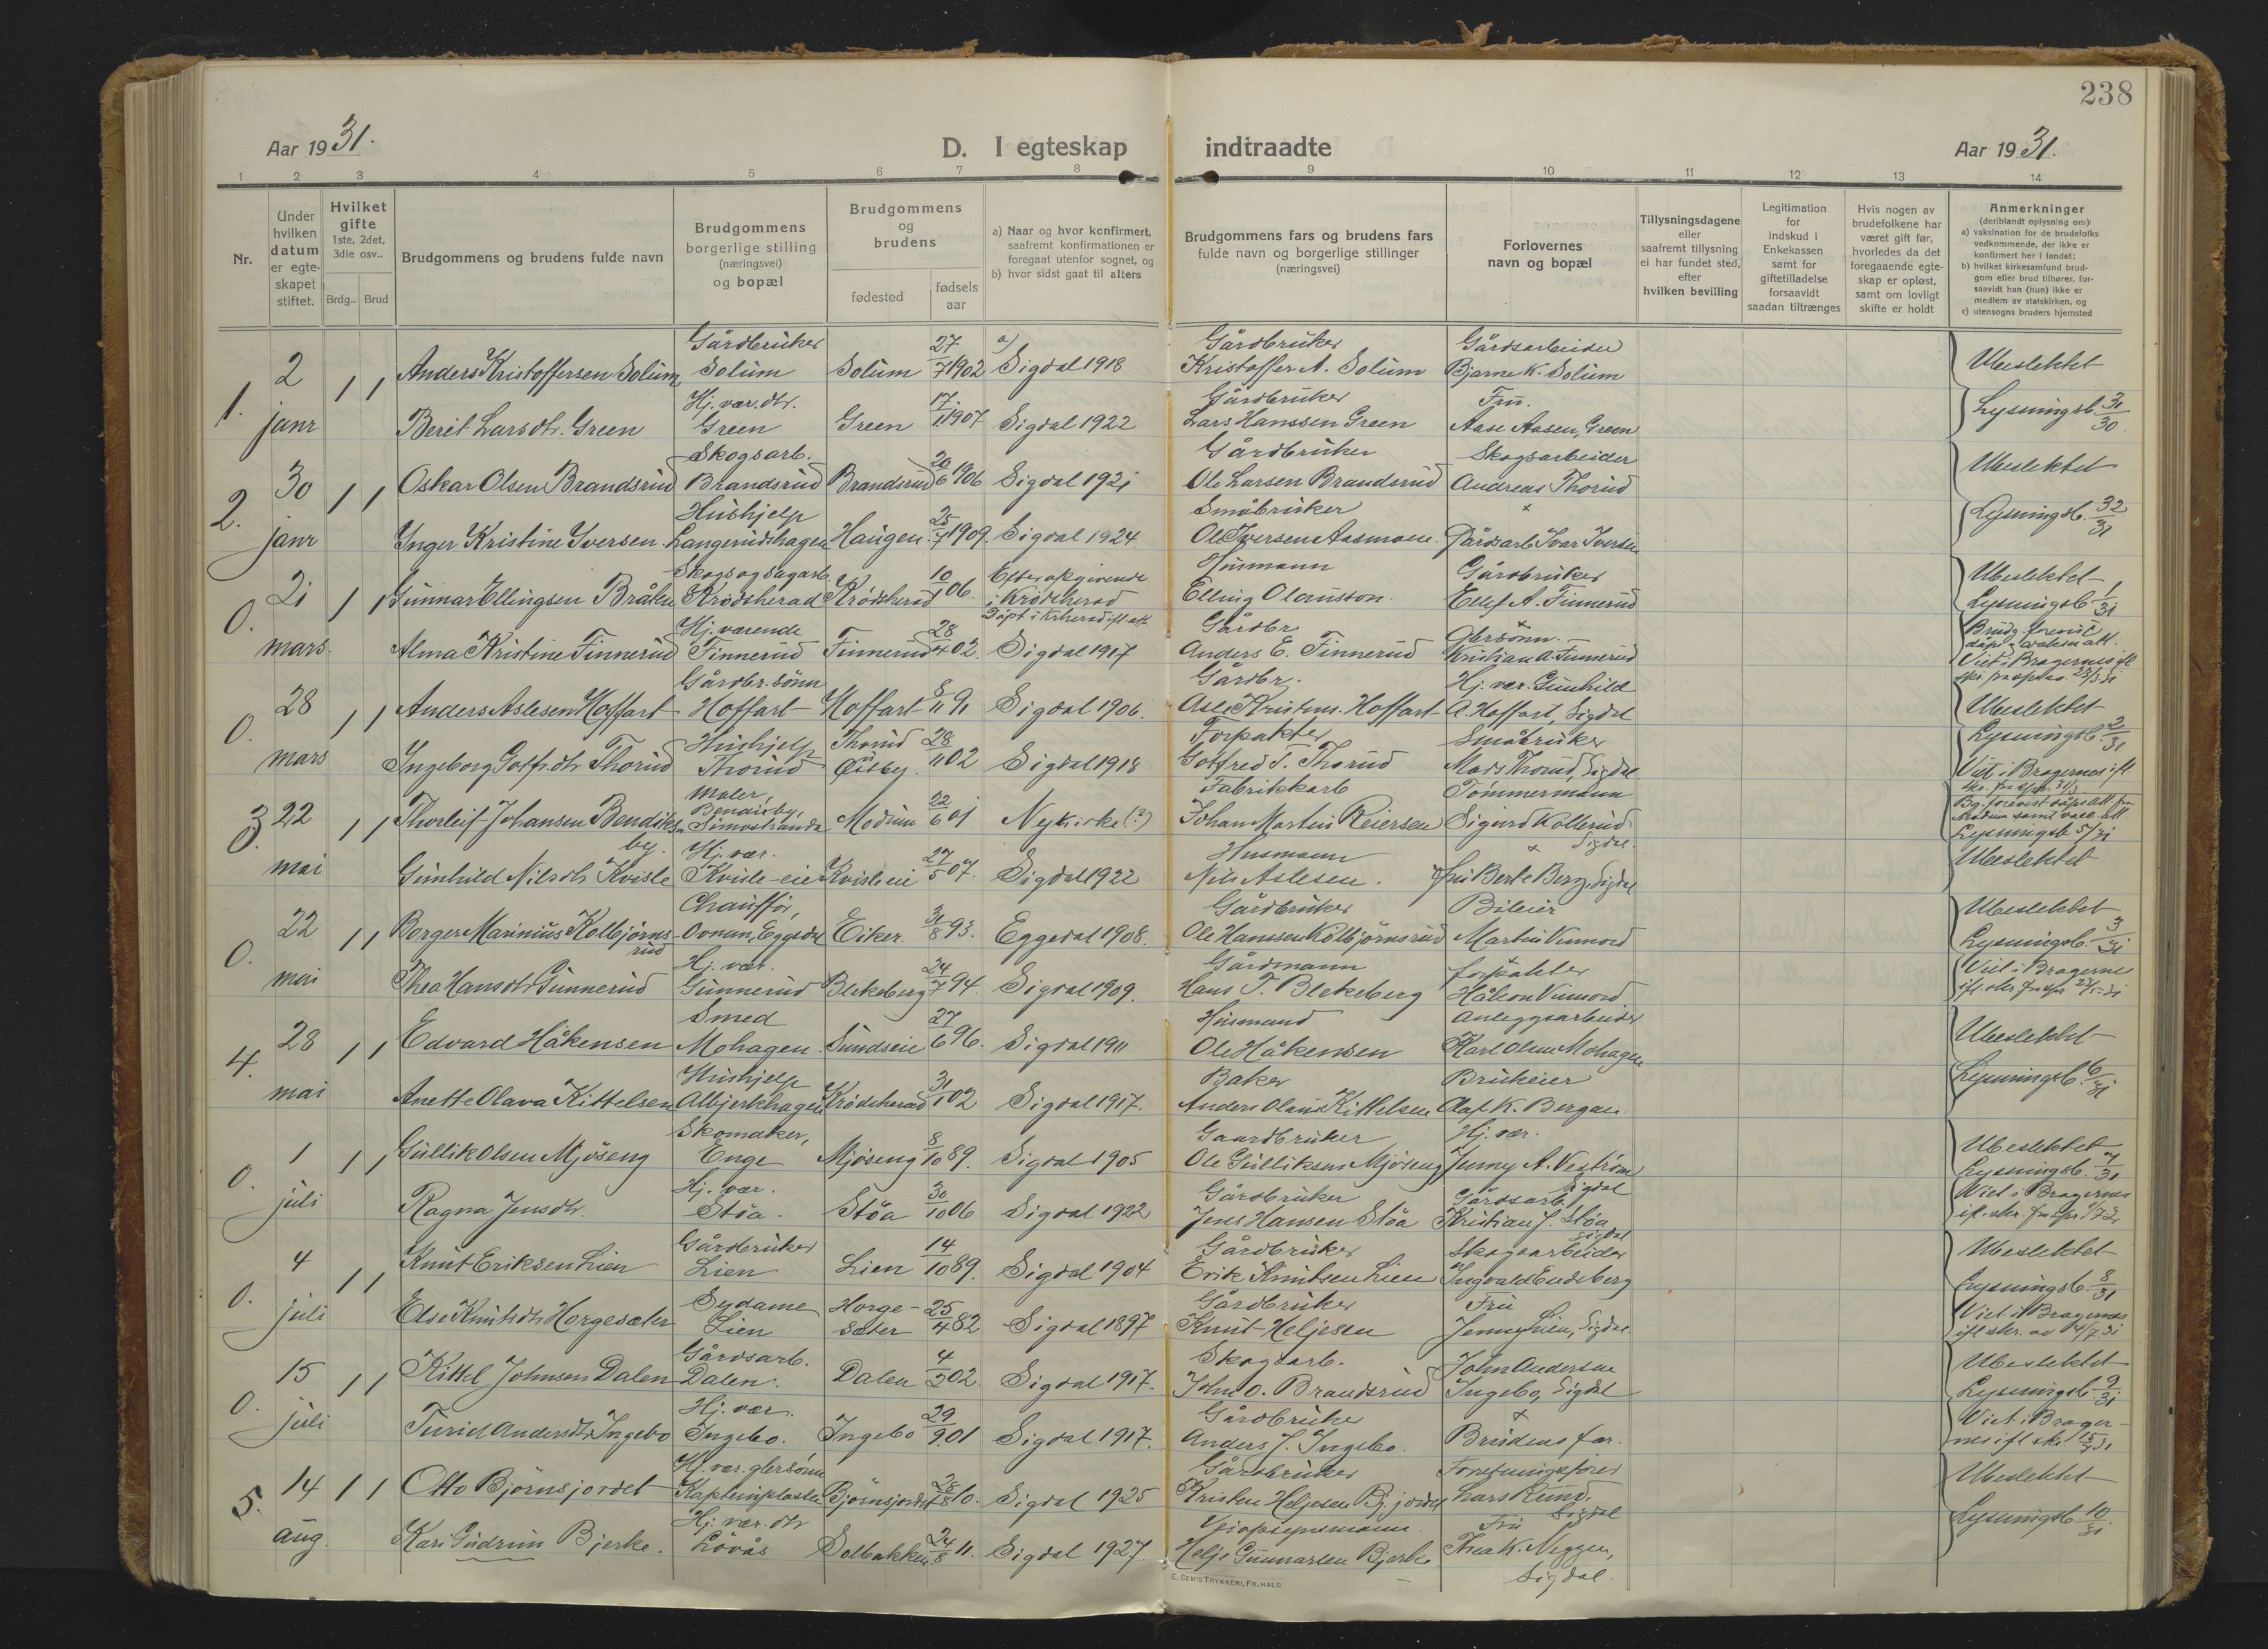 238
Aar 1931.
D. I egteskap indtraadte
Aar 1931.
1 2 3 4 5 6 7 8 9 10 11 12 13 14
Nr.
Under hvilken datum er egte-skapet stiftet.
Hvilket gifte 1ste, 2det, 3die osv..
Brdg.. Brud
Brudgommens og brudens fulde navn
Brudgommens borgerlige stilling (næringsvei) og bopæl
Brudgommens og brudens
fødested
fødsels aar
a) Naar og hvor konfirmert, saafremt konfirmationen er foregaat utenfor sognet, og
b) hvor sidst gaat til alters
Brudgommens fars og brudens fars fulde navn og borgerlige stillinger (næringsvei)
Forlovernes navn og bopæl
Tillysningsdagene eller saafremt tillysning ei har fundet sted, efter hvilken bevilling
Legitimation for indskud i Enkekassen samt for giftetilladelse forsaavidt saadan tiltrænges
Hvis nogen av brudefolkene har været gift før, hvorledes da det foregaaende egte-skap er opløst, samt om lovligt skifte er holdt
Anmerkninger (deriblandt oplysning om):
a) vaksination for de brudefolks vedkommende, der ikke er konfirmert her i landet;
b) hvilket kirkesamfund brud-gom eller brud tilhører, for-saavidt han (hun) ikke er medlem av statskirken, og
c) utensogns bruders hjemsted
1. 2 janr 1 1
Anders Kristoffersen Solum Gårdbruker Solum Solum 27/7 1902 a) Sigdal 1918 Gårdbruker Kristoffer A. Solum Gårdsarbeider Bjarne K. Solum Ubeslektet
Berit Larsdtr. Green Hj. vær. dtr. Green Green 17/11 1907 Sigdal 1922 Gårdbruker Lars Hanssen Green Fru. Aase Aasen, Green Lysningsb. 31/30.
2. 30 janr 1 1
Oskar Olsen Brandsrud Skogsarb. Brandsrud Brandsrud 20/6 1906 Sigdal 1921 Gårdbruker Ole Larsen Brandsrud Skogsarbeider Andreas Thorud Ubeslektet
Inger Kristine Iversen Hushjelp Langerudshagen Haugen 25/7 1909. Sigdal 1924. Småbruker Ole Iversen Aasmoen. Gårdsarb Ivar Iversen Lysningsb. 32/31
0. 21 mars. 1 1
Gunnar Ellingsen Bråten Skogs og sagarb Krødsherad Krødsherad 10/1 06. Efter opgivende i Krødsherad Husmann Elling Olausson. Gårdbruker Ellef A. Finnerud Ubeslektet Lysningsb 1/31
Alma Kristine Finnerud Hj. værende Finnerud Finnerud 28/4 02. Sigdal 1917 Gårdbr Anders E. Finnerud Kristian A. Finnerud Viet i Bragernes
0. 28 mars 1 1
Anders Aslesen Hoffart Gårdbr. sønn Hoffart Hoffart 8/11 91 Sigdal 1906. Gårdbr. Asle Kristens. Hoffart Hj. vær. Gunhild A. Hoffart, Sigdal Ubeslektet Lysningsb. 2/31
Ingeborg Gotfr.dtr Thorud Hushjelp Thorud Thorud Østby. 28/11 02 Sigdal 1918 Forpakter Gotfred T. Thorud Småbruker Mads Thorud, Sigdal Viet i Bragernes ifl
3. 22 mai 1 1
Thorleif Johansen Bendiksby. Maler, Simostranda Modum 22/6 01 Nykirke (?) Fabrikkarb Johan Martin Reiersen Tømmermann Sigurd Kollerud Sigdal. Lysningsb 5/31
Gunhild Nilsdtr Kvisle Hj. vær. Kvisle-eie Kvisleeie 27/5 07. Sigdal 1922 Husmann Nils Aslesen. Fru Berte Berg, Sigdal Ubeslektet
0. 22 mai 1 1
Borger Marinius Kolbjørnsrud Chauffør, Ovnan, Eggedal Eiker. 31/8 93. Eggedal 1908. Gårdbruker Ole Hanssen Kolbjørnsrud Bileier Martin Vinnord Ubeslektet Lysningsb. 3/31
Thea Hansdtr Gunnerud Hj. vær. Gunnerud Blekeberg 24/7 94. Sigdal 1909. Gårdmann Hans T. Blekeberg forpakter Håkon Vinnord. Viet i Bragernes
4. 28 mai 1 1
Edvard Håkensen Smed Mohagen Sundseie 27/6 96. Sigdal 1911 Husmand Ole Håkensen Anleggsarbeider Karl Olsen Mohagen Ubeslektet
Anette Olava Kittelsen Hushjelp Albjerkhagen Krødsherad 31/1 02 Sigdal 1917. Baker Anders Olaus Kittelsen Brukeier Olaf K. Bergan. Lysningsb. 6/31
0. 1 juli 1 1
Gullik Olsen Mjøseng Skomaker, Enge Mjøseng 8/10 89. Sigdal 1905 Gaardbruker Ole Gulliksen Mjøseng Hj. vær. Jenny A. Sigdal Ubeslektet Lysningsb. 7/31
Ragna Jensdtr. Hj. vær. Støa. Støa 30/10 06 Sigdal 1922 Gårdbruker Jens Hansen Støa Gårdsarb. Kristian J. Støa Sigdal Viet i Bragernes
0. 4 juli 1 1
Knut Eriksen Lien Gårdbruker Lien Lien 14/10 89. Sigdal 1904 Gårdbruker Erik Knutsen Lien Skogsarbeider Ingvald Endeberg Ubeslektet Lysningsb. 8/31
Else Knutsdtr Horgesæter Sydame Lien Horge-sæter 25/4 82 Sigdal 1897 Gårdbruker Knut Heljesen Fru Jenny Lien, Sigdal Viet i Bragernes ifl skr. av 14/7 31
0. 15 juli 1 1
Kittel Johnsen Dalen Gårdsarb. Dalen. Dalen 4/2 02. Sigdal 1917. Skogsarb. John O. Brandsrud John Andersen Ingebo, Sigdal Ubeslektet Lysningsb 9/31
Turid Andersdtr Ingebo Hj. vær. Ingebo. Ingebo 29/9 01 Sigdal 1917. Gårdbruker Anders J. Ingebo. Brudens far. Viet i Bragernes ifl skr. 15/7 31
5. 14 aug. 1 1
Otto Bjørnsjordet Hj. vær. gbrsønn Kapteinplassen Bjørnsjordet 28/8 10. Sigdal 1925 Gårdbruker Kristen Heljesen Bj. jordet Forretningsfører Lars Rund. Sigdal Ubeslektet
Kari Gudrun Bjerke. Hj. vær. dtr Løvås Solbakken 24/8 11. Sigdal 1927. Veiopsynsmann Helje Gunnarsen Bjerke Fru Thea K. Neggen, Sigdal. Lysningsb. 10/31.
E. SEM'S TRYKKERI, FR. HALD